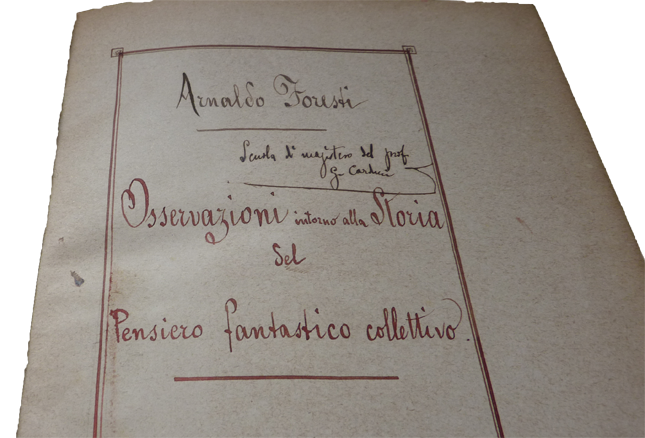 Arnaldo Foresti
Scuola di magistero del prof
G. Carducci
Osservazioni intorno alla Storia
del
Pensiero fantastico collettivo.